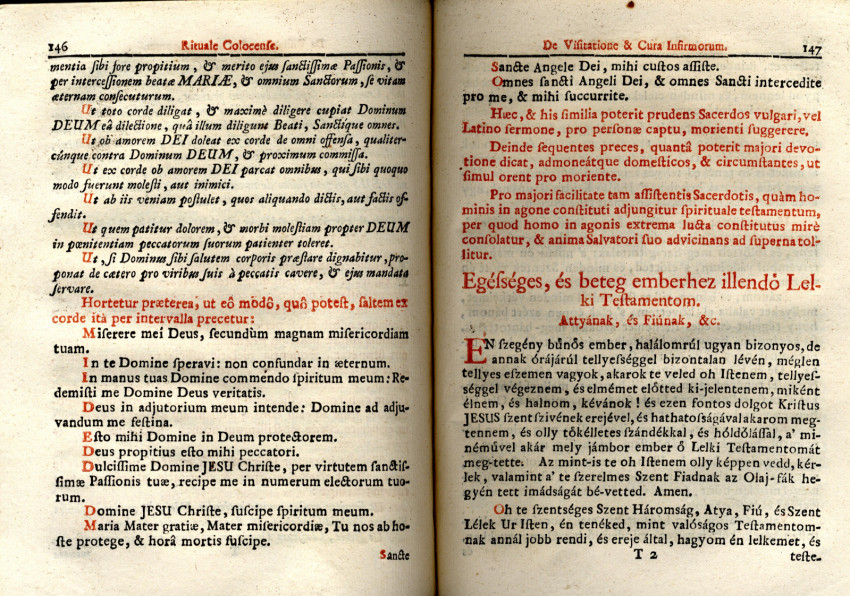 146 Rituale Colocense.
mentia sibi fore propitium, & merito ejus sanctissimæ Passionis, &
per intercessionem beatæ MARIÆ, & omnium Sanctorum, se vitam
æternam consecuturum.
Ut toto corde diligat, & maximè diligere cupiat Dominum
DEUM eâ dilectione, quâ illum diligunt Beati, Sanctique omnes.
Ut ob amorem DEI doleat ex corde de omni offensa, qualiter-
cúnque contra Dominum DEUM, & proximum commissa.
Ut ex corde ob amorem DEI parcat omnibus, qui sibi quoquo
modo fuerunt molesti, aut inimici.
Ut ab iis veniam postulet, quos aliquando dictis, aut factis of-
fendit.
Ut quem patitur dolorem, & morbi molestiam propter DEUM
in pœnitentiam peccatorum suorum patienter toleret.
Ut, si Dominus sibi salutem corporis præstare dignabitur, pro-
ponat de cætero pro viribus suis à peccatis cavere, & ejus mandata
servare.
Hortetur præterea, ut eô môdô, quô potest, saltem ex
corde ità per intervalla precetur:
Miserere mei Deus, secundùm magnam misericordiam
tuam.
In te Domine speravi: non confundar in æternum.
In manus tuas Domine commendo spiritum meum: Re-
demisti me Domine Deus veritatis.
Deus in adjutorium meum intende: Domine ad adju-
vandum me festina.
Esto mihi Domine in Deum protectorem.
Deus propitius esto mihi peccatori.
Dulcissime Domine JESU Christe, per virtutem sanctis-
simæ Passionis tuæ, recipe me in numerum electorum tuo-
rum.
Domine JESU Christe, suscipe spiritum meum.
Maria Mater gratiæ, Mater misericordiæ, Tu nos ab ho-
ste protege, & horâ mortis suscipe.
Sancte
De Visitatione & Cura Infirmorum. 147
Sancte Angele Dei, mihi custos assiste.
Omnes sancti Angeli Dei, & omnes Sancti intercedite
pro me, & mihi succurrite.
Hæc, & his similia poterit prudens Sacerdos vulgari, vel
Latino sermone, pro personæ captu, morienti suggerere.
Deinde sequentes preces, quantâ poterit majori devo-
tione dicat, admoneátque domesticos, & circumstantes, ut
simul orent pro moriente.
Pro majori facilitate tam assistentis Sacerdotis, quàm ho-
minis in agone constituti adjungitur spirituale testamentum,
per quod homo in agonis extrema lucta constitutus mirè
consolatur, & anima Salvatori suo advicinans ad superna tol-
litur.
Egésséges, és beteg emberhez illendő Lel-
ki Testamentom.
Attyának, és Fiúnak, &c.
EN szegény bűnős ember, halálomrúl ugyan bizonyos, de
annak órájárúl tellyességgel bizontalan lévén, méglen
tellyes eszemen vagyok, akarok te veled oh Istenem, tellyes-
séggel végeznem, és elmémet előtted ki-jelentenem, miként
élnem, és halnom, kévánok! és ezen fontos dolgot Kristus
JESUS szent szivének erejével, és hathatosságával akarom meg-
tennem, és olly tőkélletes szándékkal, és hóldólással, a' mi-
néművel akár mely jámbor ember ő Lelki Testamentomát
meg-tette. Az mint-is te oh Istenem olly képpen vedd, kér-
lek, valamint a' te szerelmes Szent Fiadnak az Olaj-fák he-
gyén tett imádságát bé-vetted. Amen.
Oh te szentséges Szent Háromság, Atya, Fiú, és Szent
Lélek Ur Isten, én tenéked, mint valóságos Testamentom-
nak annál jobb rendi, és ereje által, hagyom én lelkemet, és
T 2 teste-